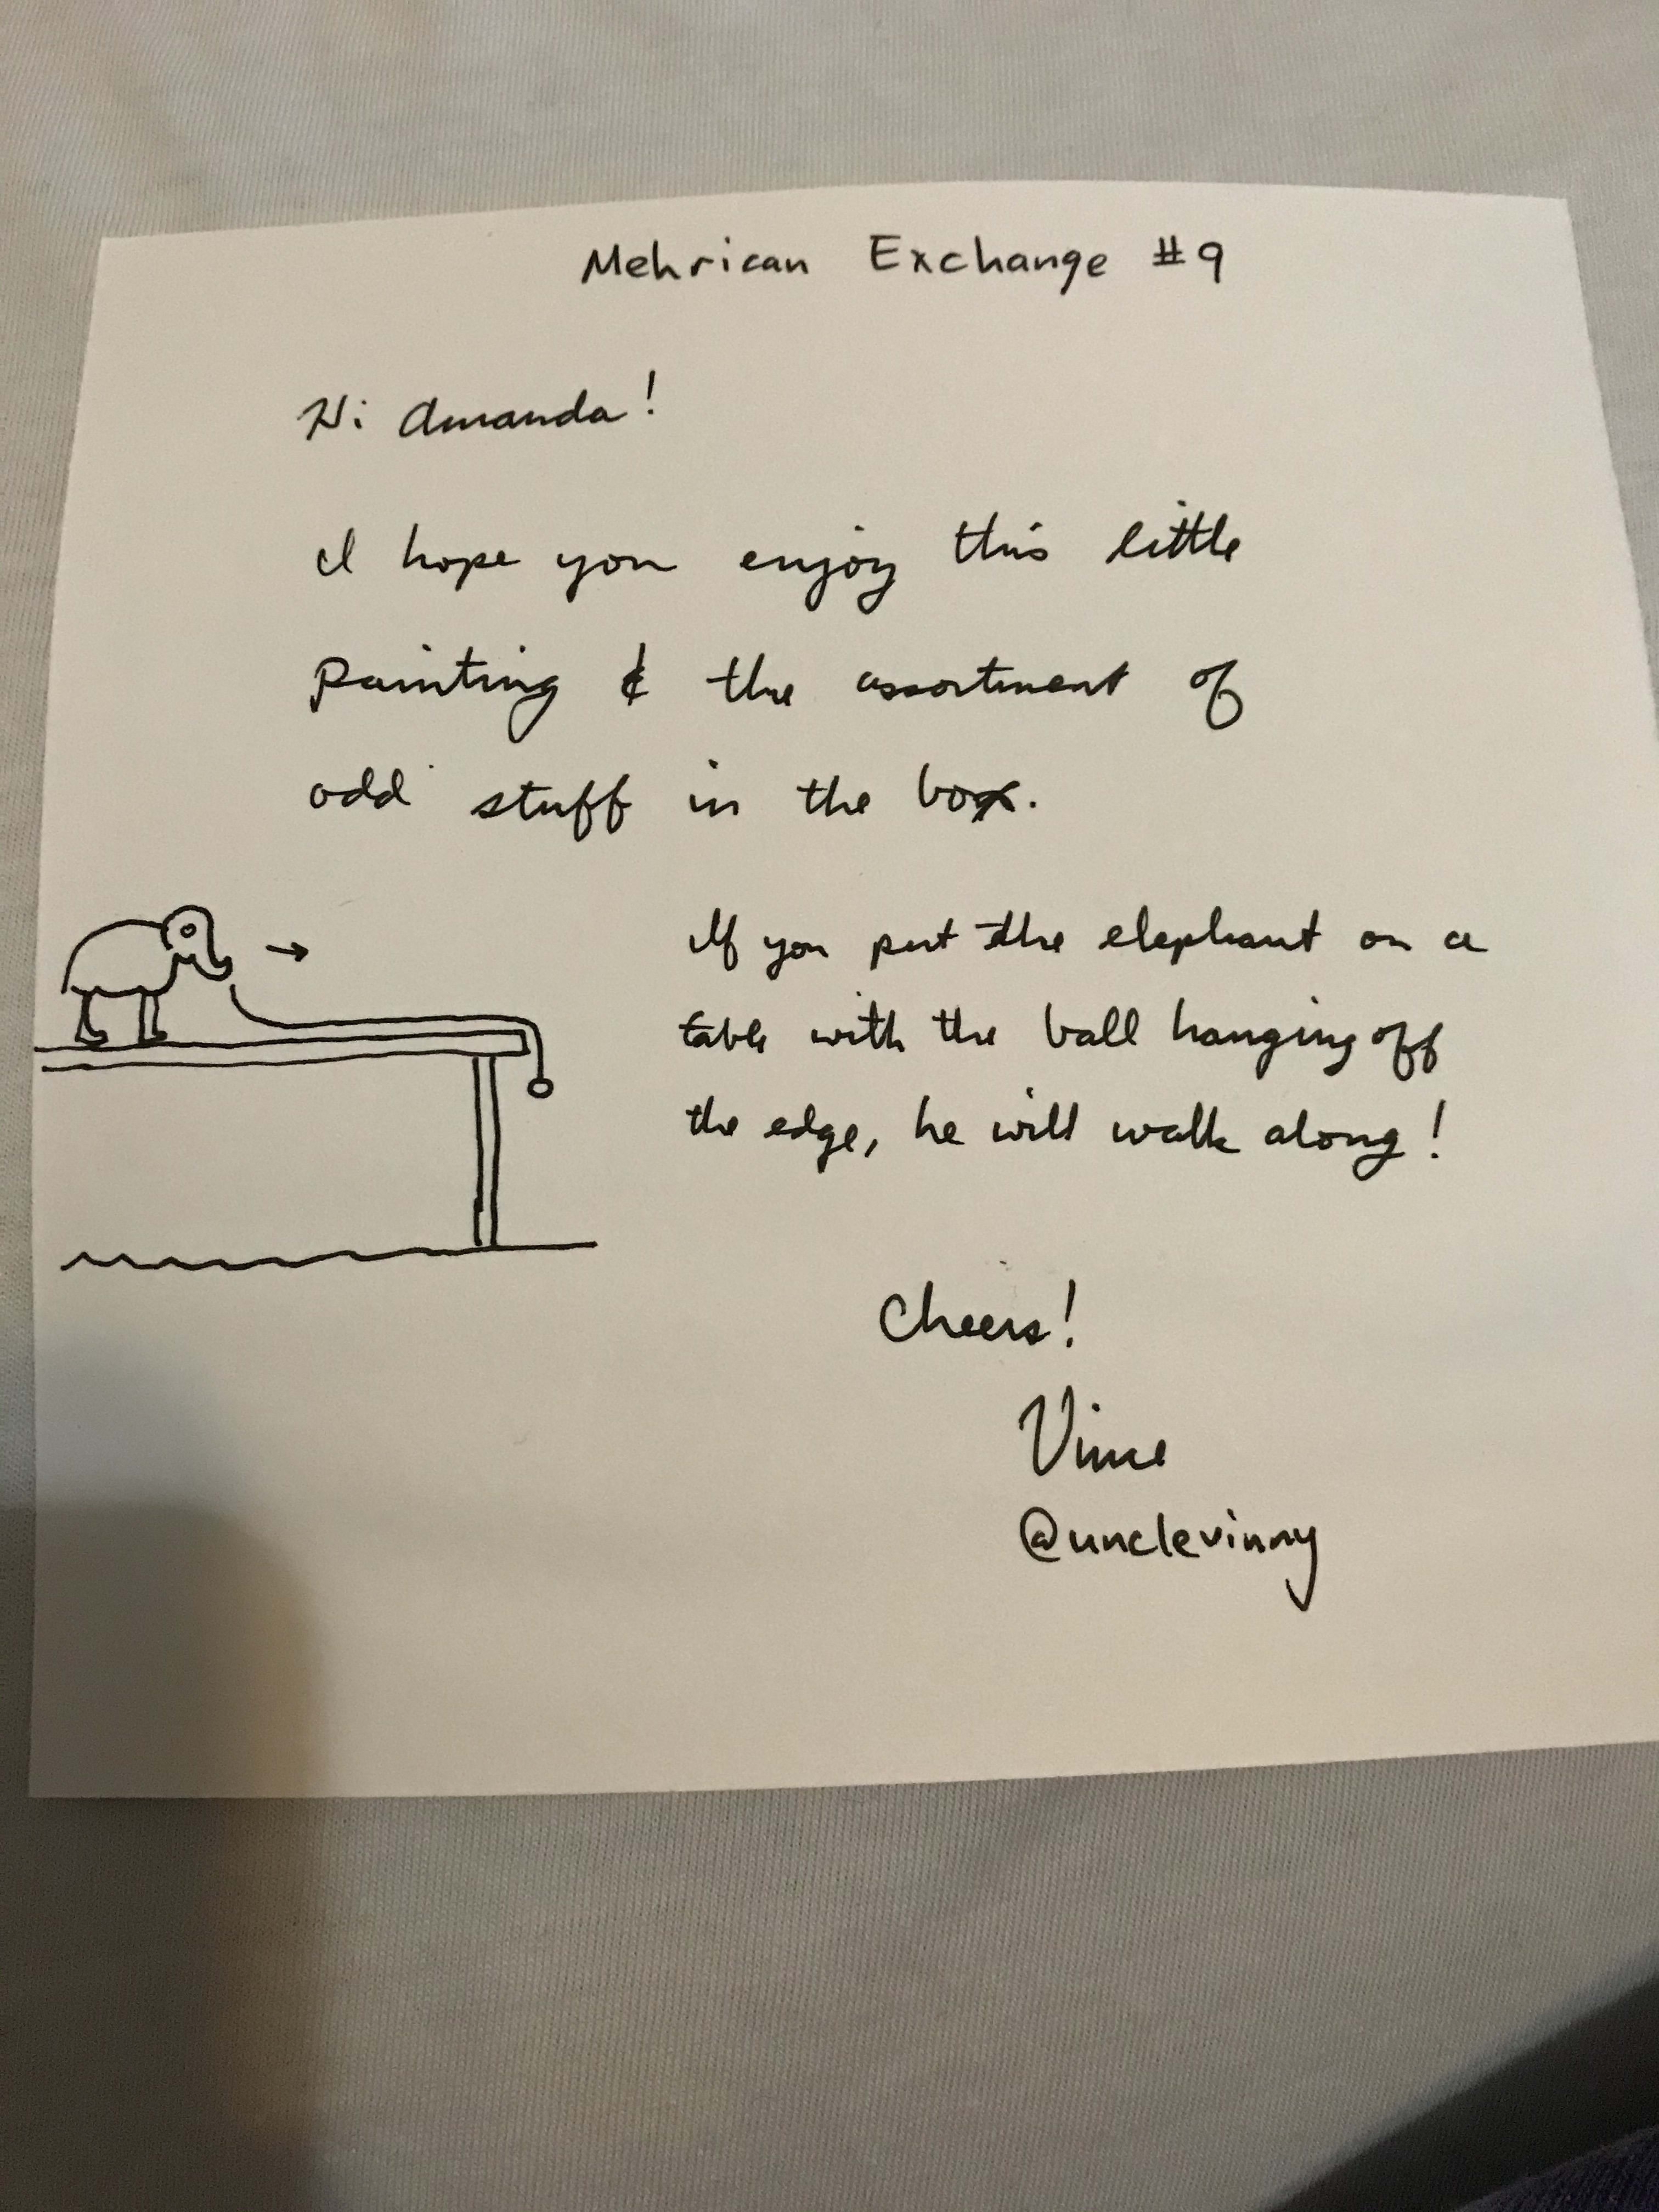 Mehrican Exchange #9
Hi Amanda!
I hope you enjoy this little
painting & the assortment of
odd stuff in the box.
If you put the elephant on a
table with the ball hanging off
the edge, he will walk along!
Cheers!
Vince
@unclevinny